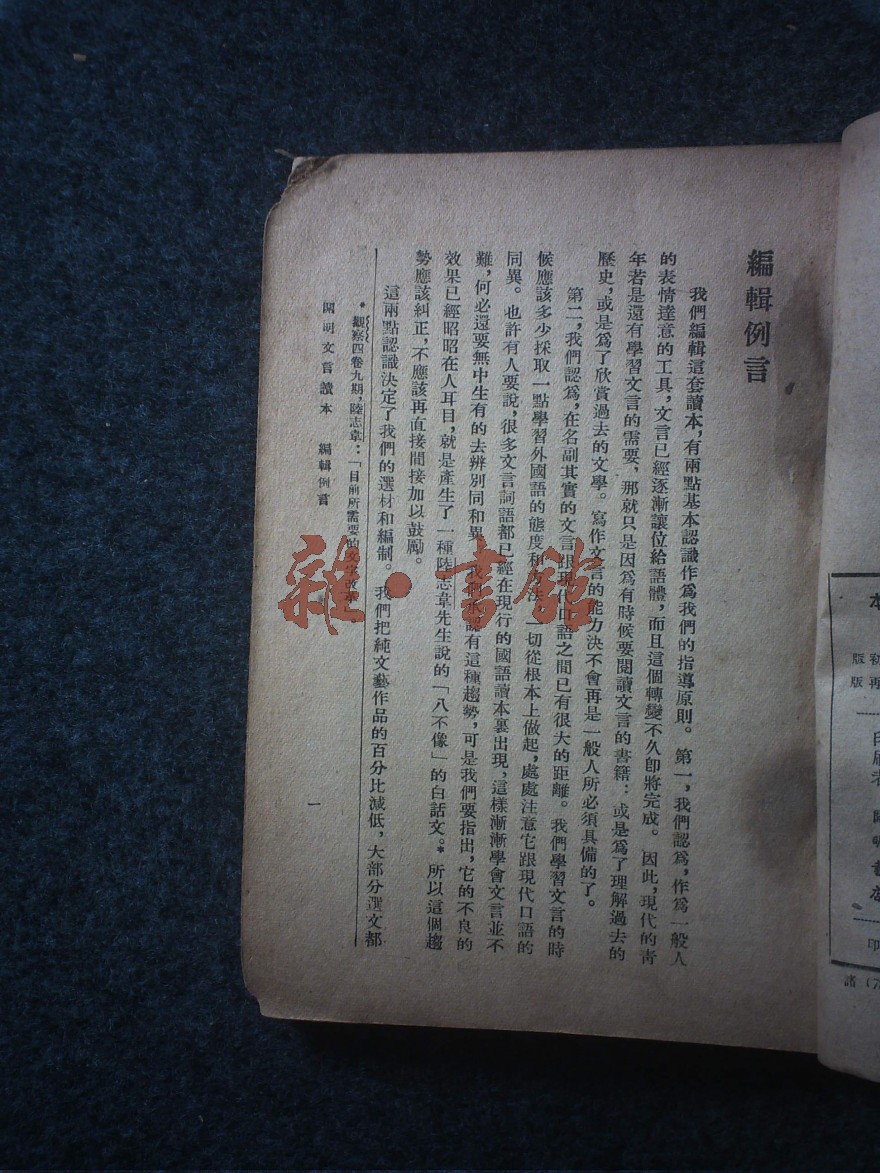 編輯例言
我們編輯這套讀本，有兩點基本認識作爲我們的指導原則。第一，我們認爲，作爲一般人
的表情達意的工具，文言已經逐漸讓位給語體，而且這個轉變不久卽將完成。因此，現代的靑
年若是還有學習文言的需要，那就只是因爲有時候要閱讀文言的書籍：或是爲了理解過去的
歷史，或是爲了欣賞過去的文學。寫作文言的能力決不會再是一般人所必須具備的了。
第二，我們認爲，在名副其實的文言跟現代口語之間已有很大的距離。我們學習文言的時
候應該多少採取一點學習外國語的態度和方法，一切從根本上做起，處處注意它跟現代口語的
同異。也許有人要說，很多文言詞語都已經在現行的國語讀本裏出現，這樣漸漸學會文言並不
難，何必還要無中生有的去辨別同和異。我們承認有這種趨勢，可是我們要指出，它的不良的
效果已經昭昭在人耳目，就是產生了一種陸志韋先生說的「八不像」的白話文。*所以這個趨
勢應該糾正，不應該再直接間接加以鼓勵。
這兩點認識決定了我們的選材和編制。我們把純文藝作品的百分比減低，大部分選文都
*觀察四卷九期，陸志韋：「目前所需要的文字改革」
開明文言讀本 編輯例言
一
雜·書館
本
版 初
版 再
印刷者
印